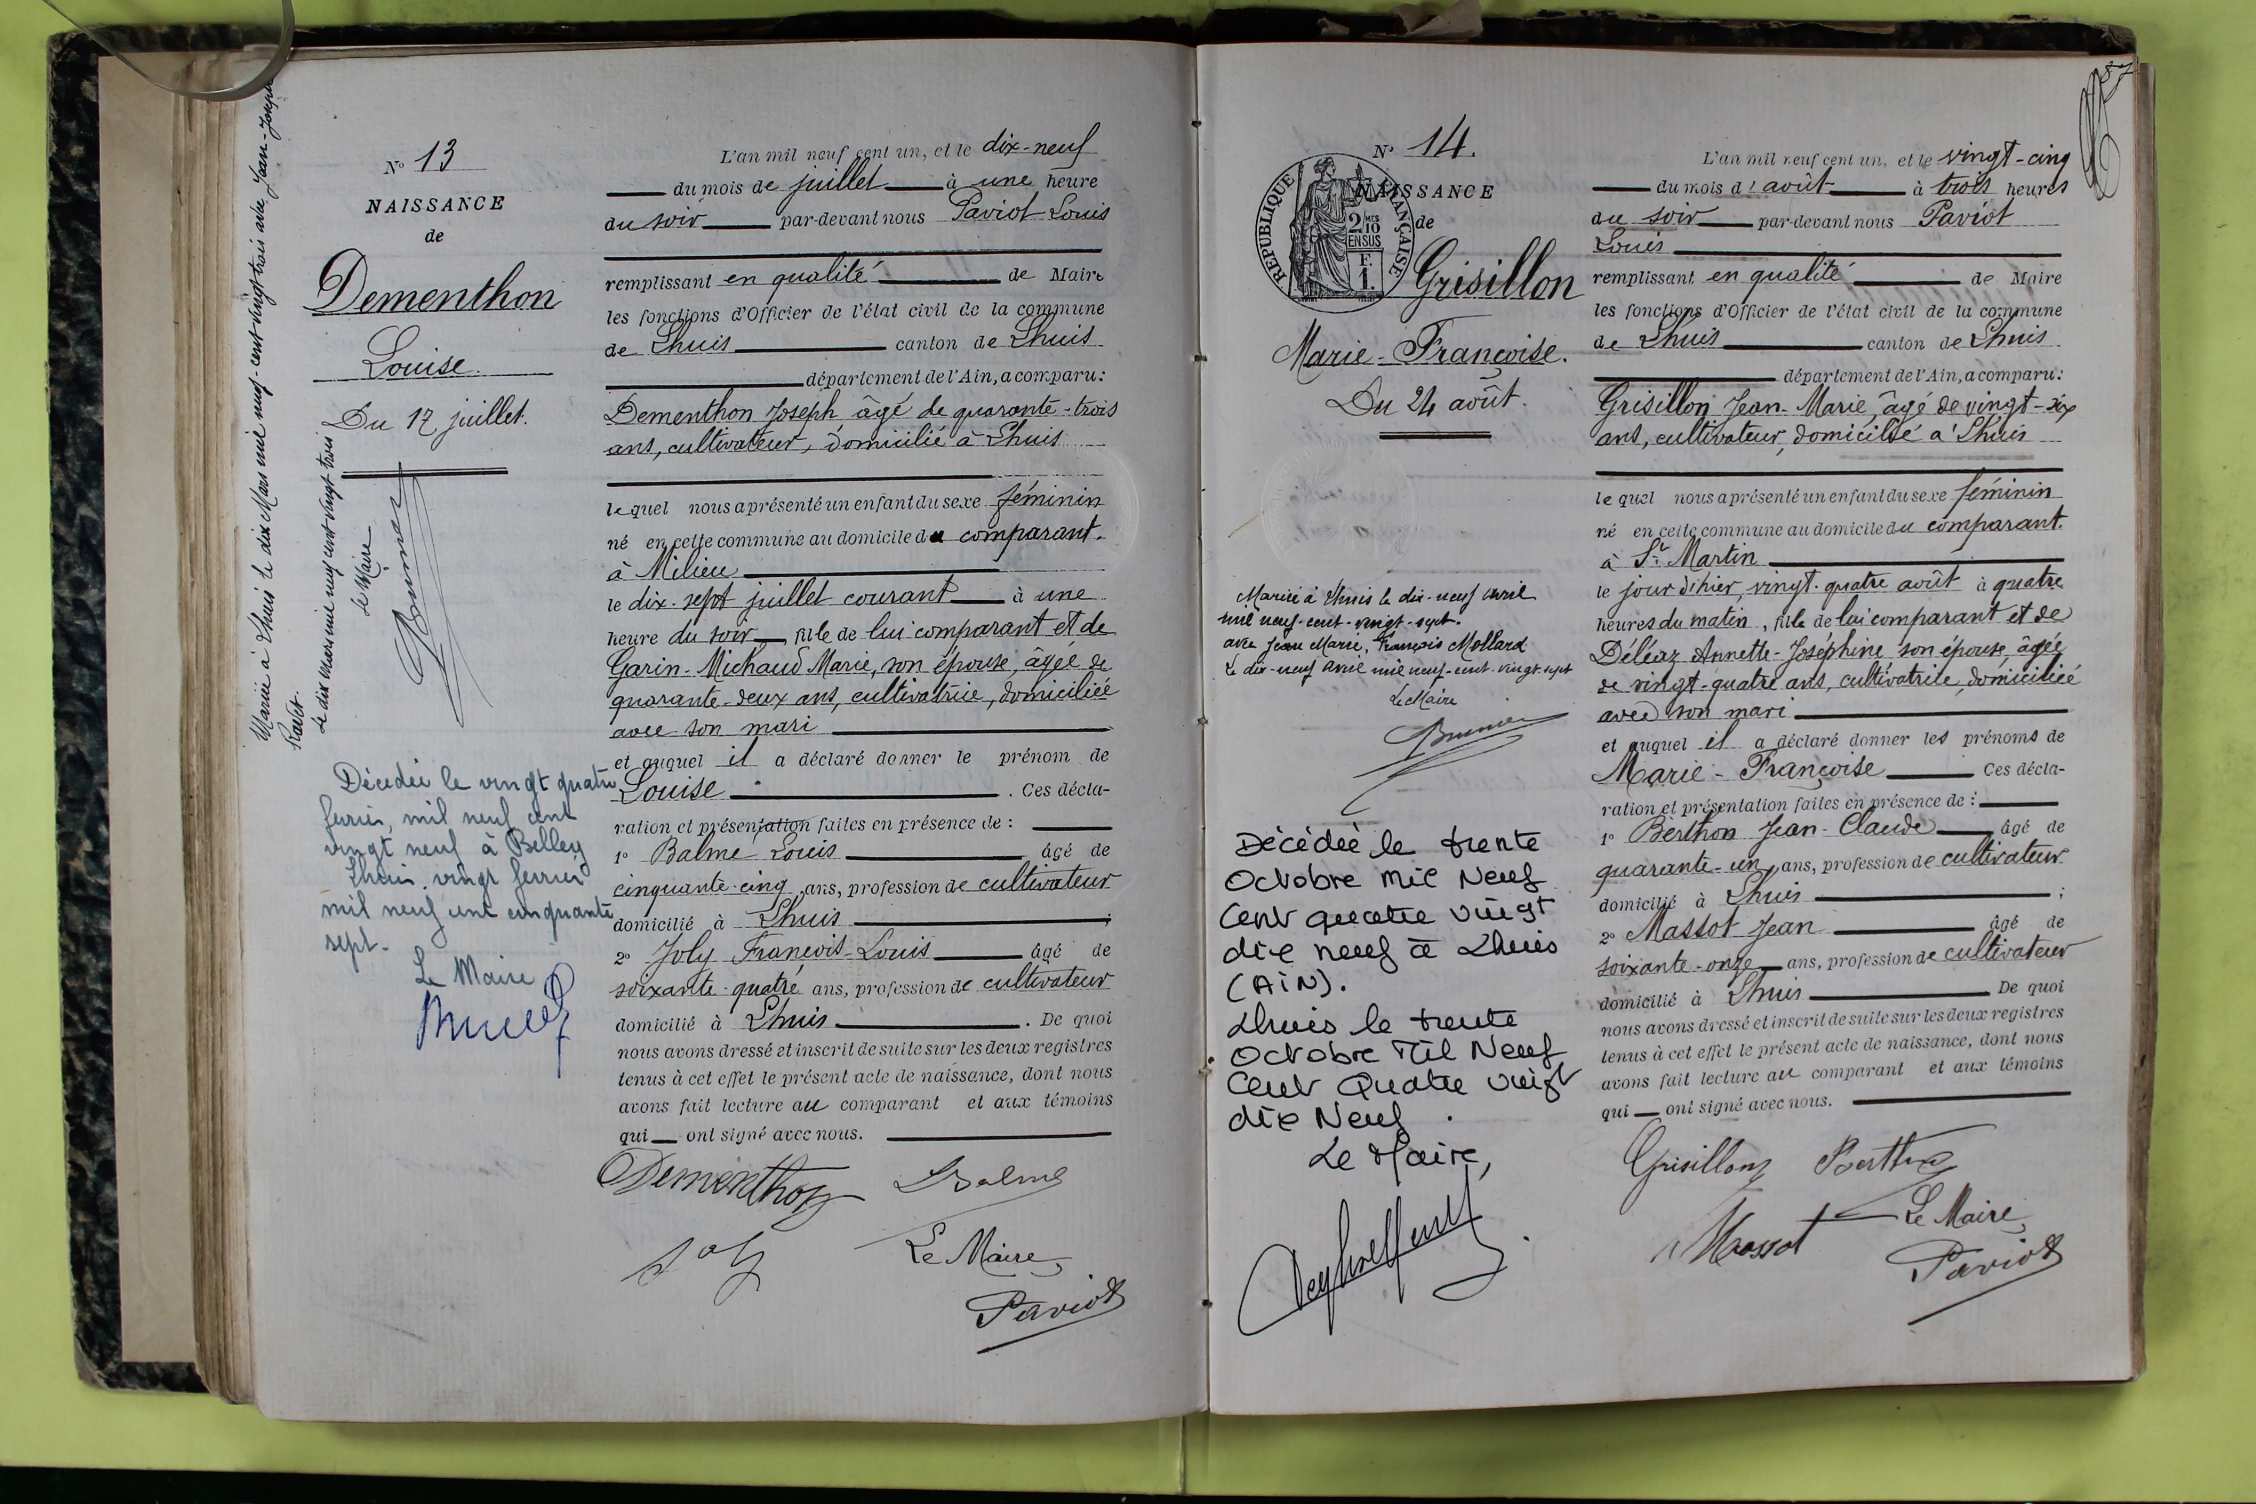 N° 13
NAISSANCE
de
Dementhon
Louise.
Du 17 juillet.
Mariée à Lhuis le dix Mars mil neuf-cent vingt trois avec Jean-Joseph
Ravet.
Le dix Mars mil neuf cent vingt trois
Le Maire
Décédée le vingt quatre
fevrier, mil neuf cent
vingt neuf à Belley
Lhuis. vingt fevrier
mil neuf cent cinquante
sept.
Le Maire
L'an mil neuf cent un, et le dix-neuf
du mois de juillet à une heure
du soir par-devant nous Paviot Louis
remplissant en qualité de Maire
les fonctions d'Officier de l'état civil de la commune
de Lhuis canton de Lhuis
département de l'Ain, a comparu:
Dementhon Joseph, âgé de quarante-trois
ans, cultivateur, domicilié à Lhuis
lequel nous a présenté un enfant du sexe féminin
né en cette commune au domicile du comparant.
à Milieu
le dix-sept juillet courant à une
heure du soir, fille de lui comparant et de
Garin-Michaud Marie, son épouse, âgée de
quarante-deux ans, cultivatrice, domiciliée
avec son mari
et auquel il a déclaré donner le prénom de
Louise. Ces décla-
ration et présentation faites en présence de :
1° Balme Louis âgé de
cinquante-cinq ans, profession de cultivateur
domicilié à Lhuis ;
2° Joly François-Louis âgé de
soixante-quatre ans, profession de cultivateur
domicilié à Lhuis. De quoi
nous avons dressé et inscrit de suite sur les deux registres
tenus à cet effet le présent acte de naissance, dont nous
avons fait lecture au comparant et aux témoins
qui ont signé avec nous.
Dementhon LBalme
Joly Le Maire,
Paviot
87
N° 14.
RÉPUBLIQUE FRANÇAISE
2/10 MES
EN SUS
F.
1.
NAISSANCE
de
Grisillon
Marie-Françoise.
Du 24 août.
Mariée à Lhuis le dix-neuf avril
mil neuf-cent-vingt-sept.
avec Jean Marie, François Mollard
Le dix-neuf avril mil neuf-cent-vingt-sept
Le Maire
Décédée le trente
Octobre mil Neuf
Cent quatre vingt
dix neuf à Lhuis
(AIN).
Lhuis le trente
Octobre Mil Neuf
Cent Quatre vingt
dix Neuf.
Le Maire,
L'an mil neuf cent un, et le vingt-cinq
du mois d'août à trois heures
du soir par-devant nous Paviot
Louis
remplissant en qualité de Maire
les fonctions d'Officier de l'état civil de la commune
de Lhuis canton de Lhuis
département de l'Ain, a comparu:
Grisillon Jean-Marie, âgé de vingt-six
ans, cultivateur, domicilié à Lhuis
lequel nous a présenté un enfant du sexe féminin
né en cette commune au domicile du comparant.
à St Martin
le jour d'hier, vingt-quatre août à quatre
heures du matin, fille de lui comparant et de
Déléaz Annette-Joséphine son épouse, âgée
de vingt-quatre ans, cultivatrice, domiciliée
avec son mari
et auquel il a déclaré donner les prénoms de
Marie-Françoise Ces décla-
ration et présentation faites en présence de :
1° Berthon Jean-Claude âgé de
quarante-un ans, profession de cultivateur
domicilié à Lhuis ;
2° Massot Jean âgé de
soixante-onze ans, profession de cultivateur
domicilié à Lhuis De quoi
nous avons dressé et inscrit de suite sur les deux registres
tenus à cet effet le présent acte de naissance, dont nous
avons fait lecture au comparant et aux témoins
qui ont signé avec nous.
Grisillon Berthon
Massot Le Maire,
Paviot